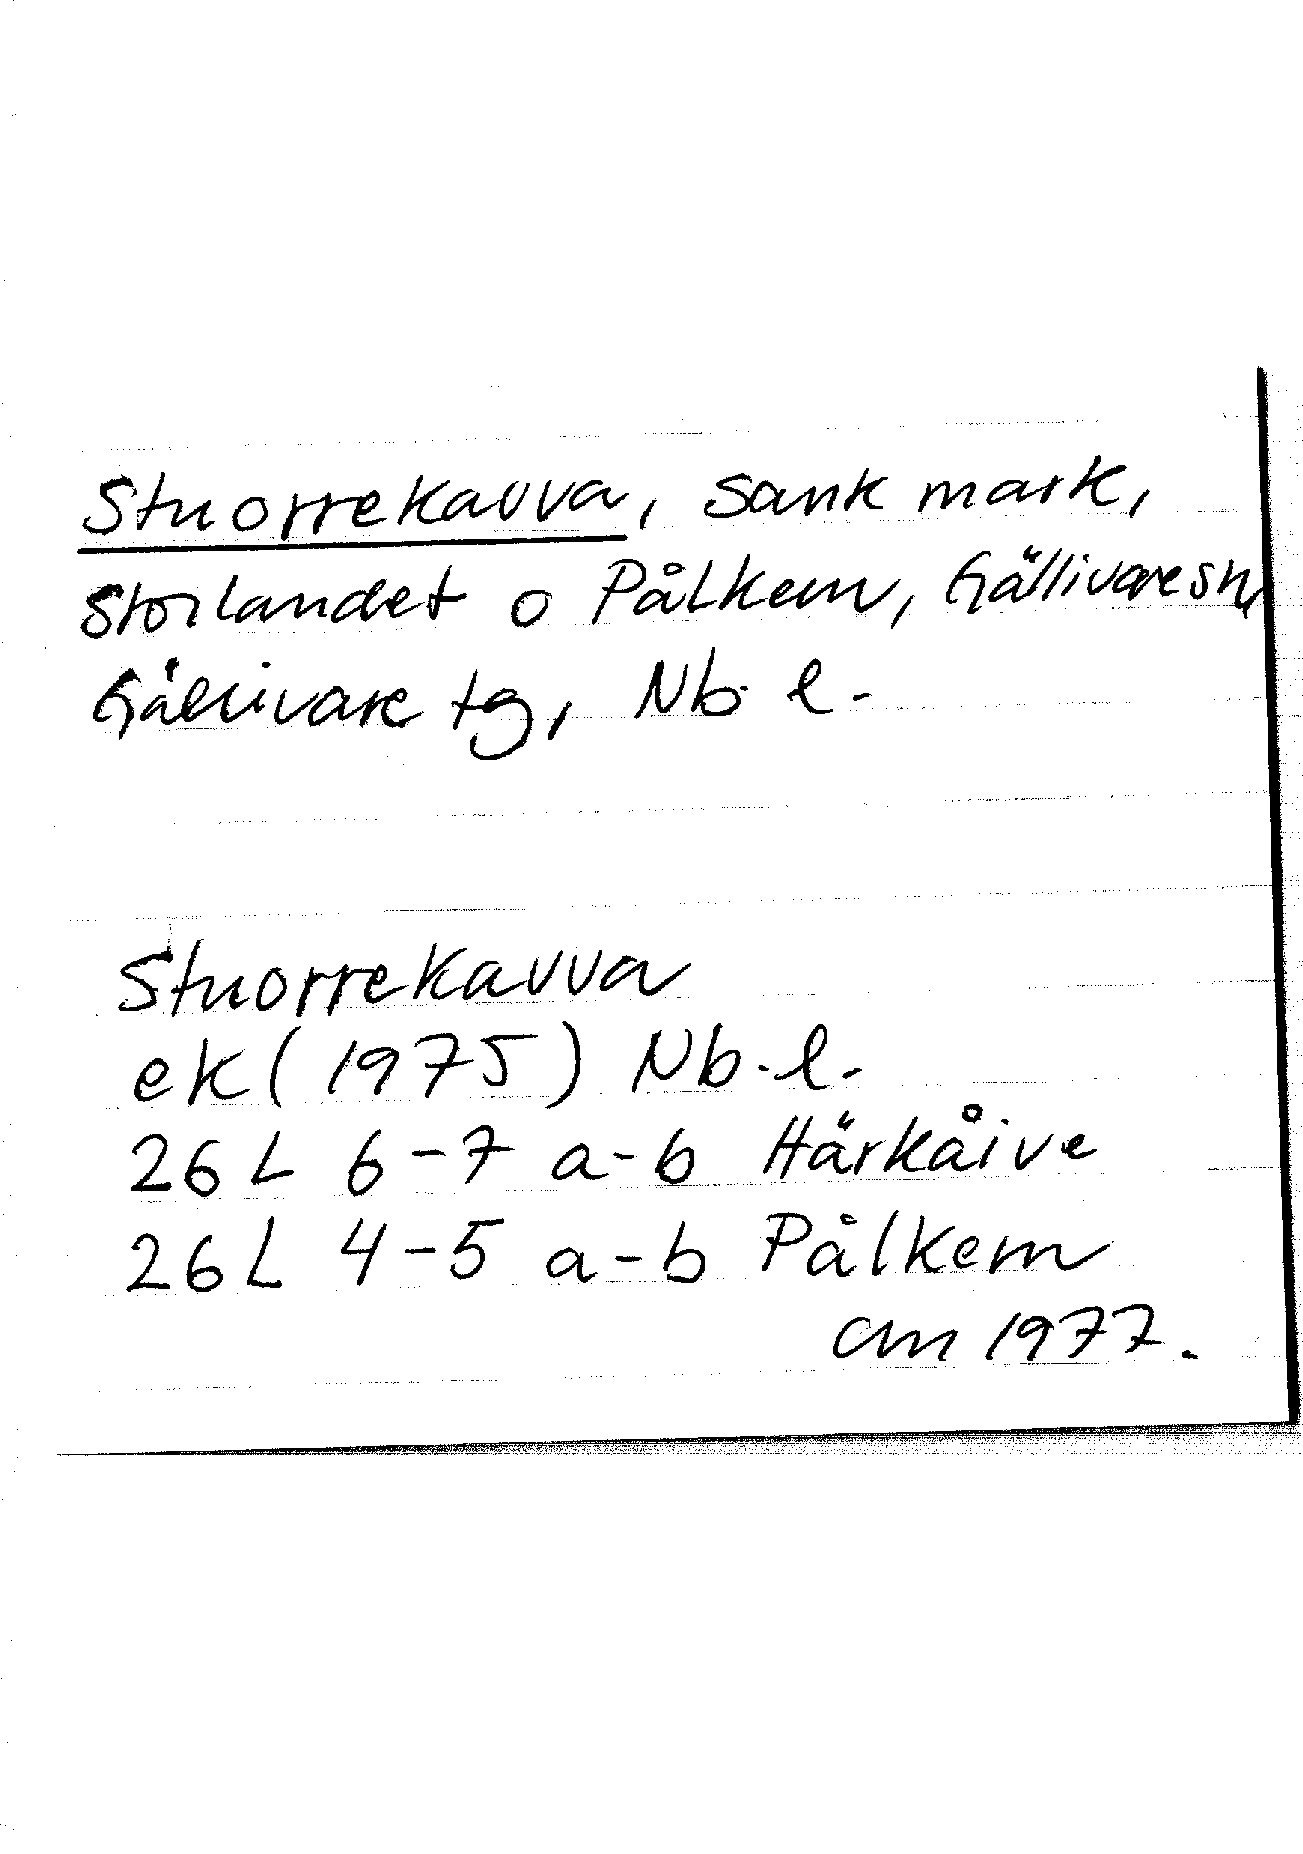 Stuorrekavva, sank mark,
Storlandet o Pålkem, Gällivare sn,
Gällivare tg, Nb. l.
Stuorrekavva
ek (1975) Nb. l.
26 L 6-7 a-b Härkåive
26 L 4-5 a-b Pålkem
am 1977.